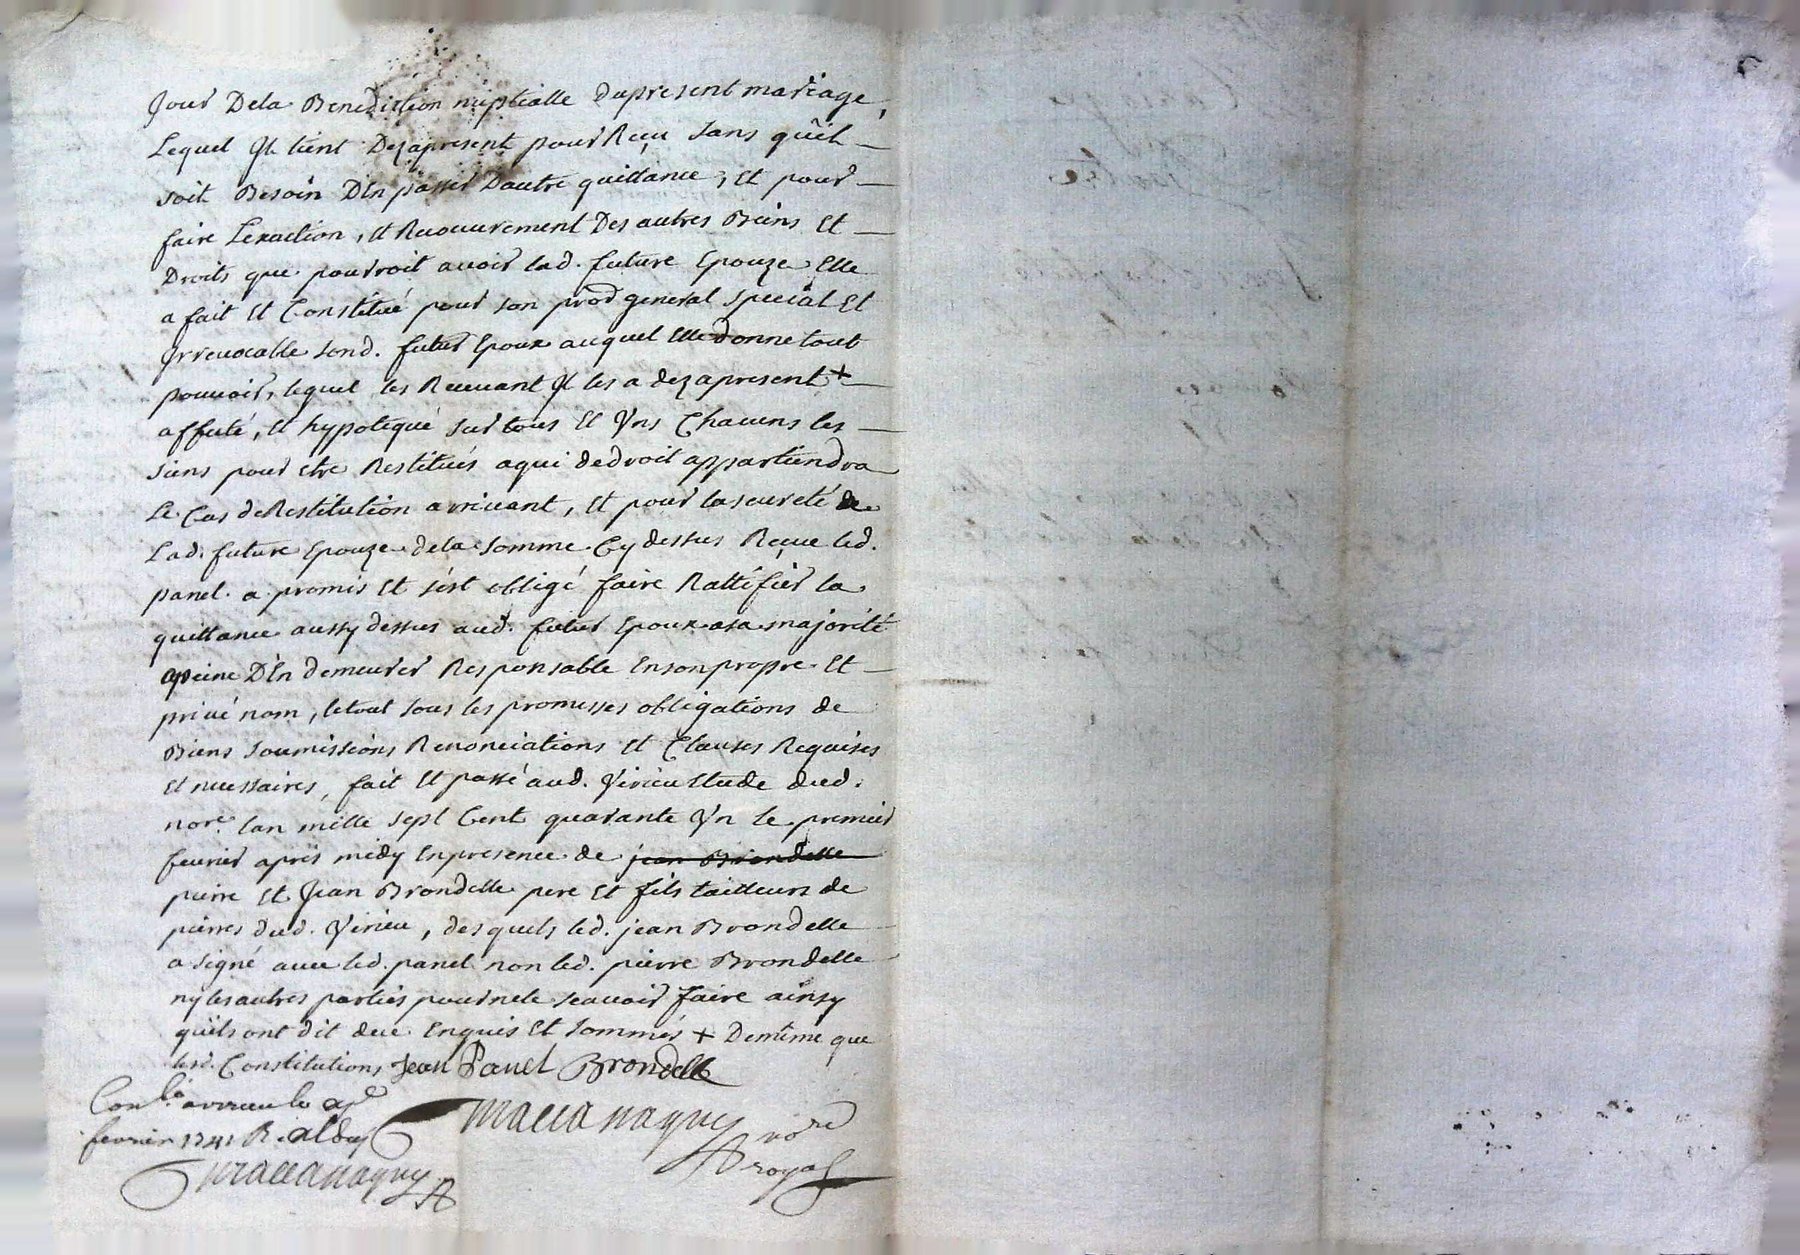 Jour Dela Benediction nuptialle dupresent mariage,
Lequel Il tient Dezapresent pour Reçu sans qu'il
soit Besoin D'En passer Dautre quittance, Et pour
faire Lexaction, et Recouurement Des autres Biens Et
Droits que pourroit auoir lad. future Epouze Elle
a fait Et Constitué pour son pror general special Et
Irreuocable sond. futur Epoux auquel Elle donne tout
pouuoir, lequel les Receuant Il les a dezapresent +
affecté, et hypotequé sur tous Et Vns Chacuns les
siens pour etre Restitués a qui dedroit appartiendra
Le Cas deRestitution arriuant, Et pour la seureté de
Lad. future Epouze dela somme Cy dessus Reçue led.
panel a promis Et s'est obligé faire Rattifier la
quittance aussy dessus aud. futur Epoux a sa majorité
apeine D'En demeurer Responsable Ensonpropre Et
priué nom, letout sous les promesses obligations de
Biens soumissions Renonciations Et Clauses Requises
Et necessaires, fait Et passé aud. Virieu Etude dud.
nore. lan mille sept Cent quarante Vn le premier
feurier apres midy Enpresence de jean Brondelle
pierre Et Jean Brondelle pere Et fils tailleurs de
pierres dud. Virieu, desquels led. jean Brondelle
a signé auec led. panel non led. pierre Brondelle
ny les autres parties pour ne le scauoir faire ainsy
qu'ils ont dit de ce Enquis Et sommés + Demême que
lesd. Constitutions Jean Panel Brondelle
Conlé a virieu le
feurier 1741 R.
Maccanaguy nore
Maccanaguy royal